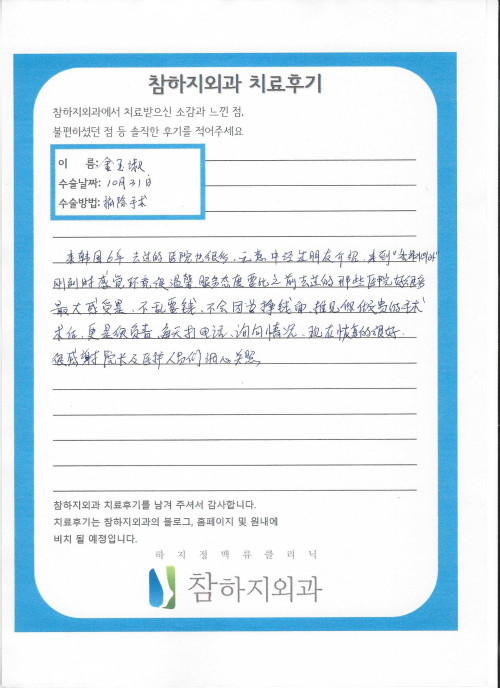 참하지외과 치료후기
참하지외과에서 치료받으신 소감과 느낀 점,
불편하셨던 점 등 솔직한 후기를 적어주세요
이 름: 金玉淑
수술날짜: 10月31日
수술방법: 摘除手术
来韩国6年 去过的医院也很多, 无意中经过朋友介绍, 来到"참하지외과"
刚到时感觉环境很温馨 服务态度要比之前去过的那些医院好很多
最大感受是, 不乱要钱, 不会因为挣钱而, 推见你做贵的手术
术后, 更是很负责, 每天打电话, 询问情况, 现在恢复的很好.
很感谢院长及医护人员们细心关照,
참하지외과 치료후기를 남겨 주셔서 감사합니다.
치료후기는 참하지외과의 블로그, 홈페이지 및 원내에
비치 될 예정입니다.
하지정맥류클리닉
참하지외과